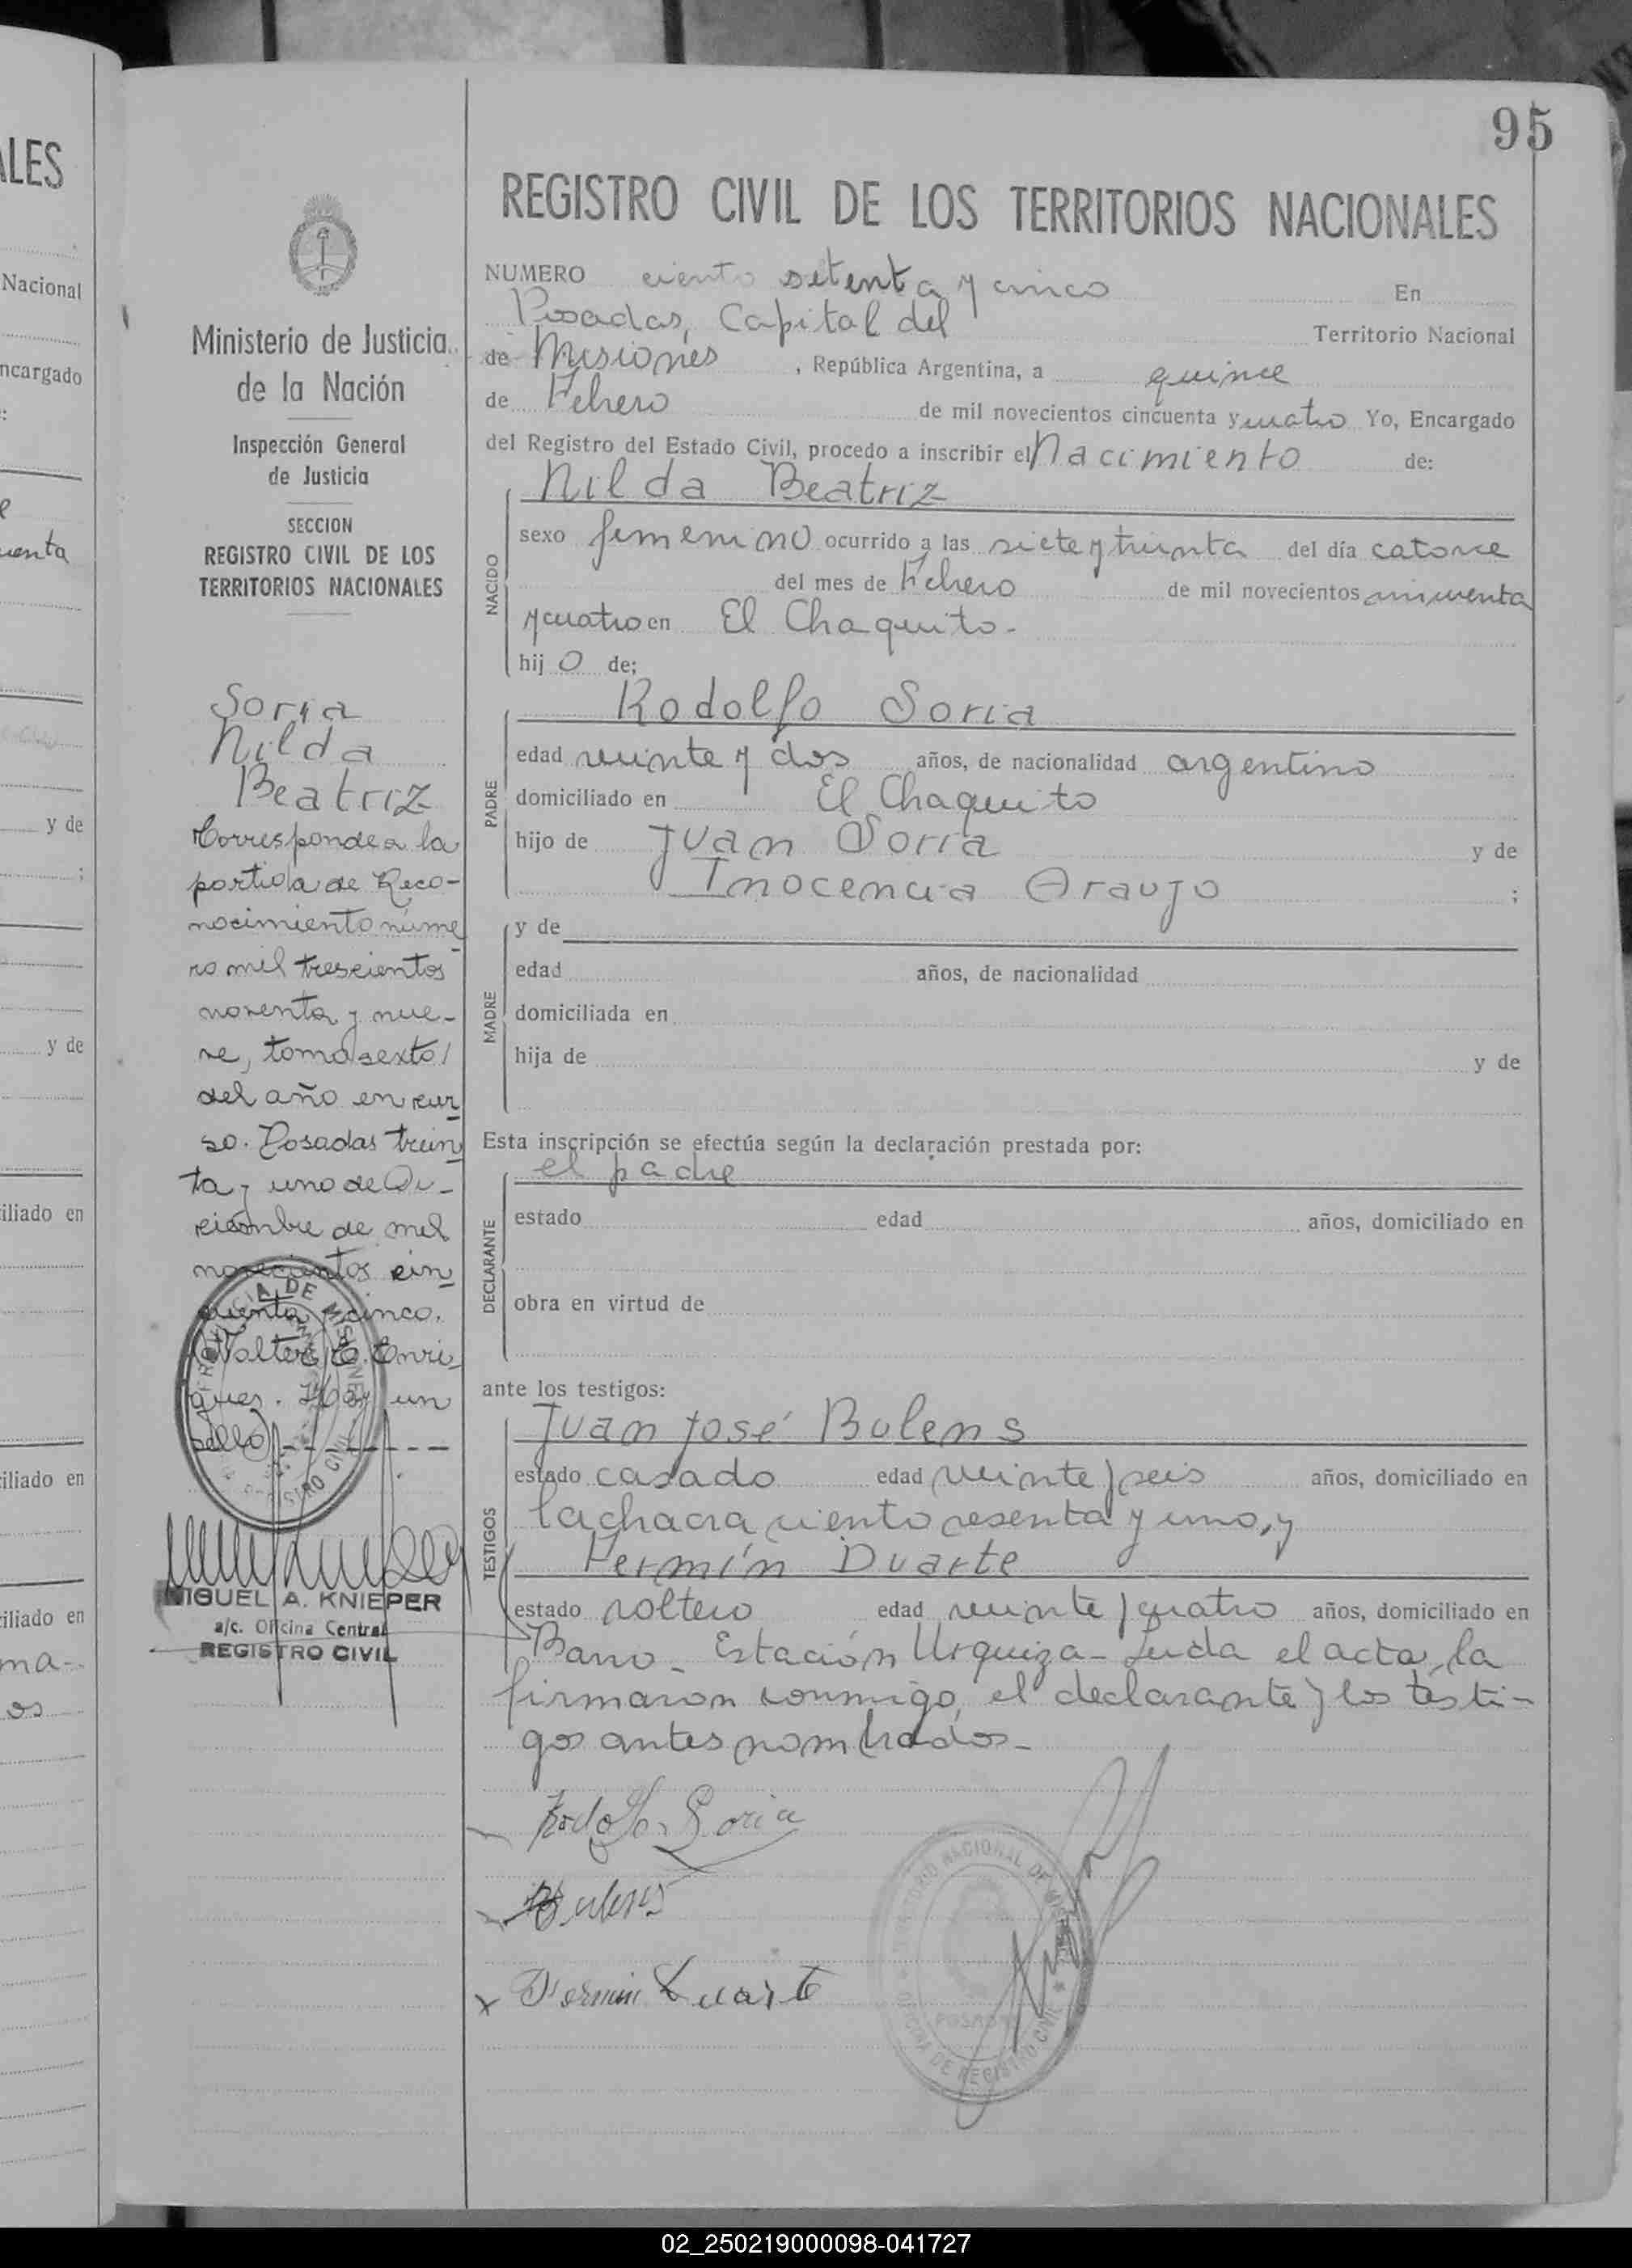 ALES
Nacional
ncargado
:
e
uenta
y de
;
y de
iliado en
iliado en
iliado en
ma-
os
95
Ministerio de Justicia
de la Nación
Inspección General
de Justicia
SECCION
REGISTRO CIVIL DE LOS
TERRITORIOS NACIONALES
Soria
Nilda
Beatriz
Corresponde a la
partida de Reco-
nocimiento núme
ro mil trescientos
noventa y nue-
ve, tomo sexto/
del año en cur
so. Posadas trein
ta y uno de Di-
ciembre de mil
novecientos cin
cuenta y cinco.
Walter E. Enri
ques. Hay un
sello)
PROVINCIA DE MISIONES
REGISTRO CIVIL
MIGUEL A. KNIEPER
a/c. Oficina Central
REGISTRO CIVIL
REGISTRO CIVIL DE LOS TERRITORIOS NACIONALES
NUMERO ciento setenta y cinco En
Posadas, Capital del Territorio Nacional
de Misiones , República Argentina, a quince
de Febrero de mil novecientos cincuenta y cuatro Yo, Encargado
del Registro del Estado Civil, procedo a inscribir el Nacimiento de:
NACIDO
Nilda Beatriz
sexo femenino ocurrido a las siete y treinta del día catorce
del mes de Febrero de mil novecientos cincuenta
y cuatro en El Chaquito-
hij O de;
PADRE
Rodolfo Soria
edad veinte y dos años, de nacionalidad argentino
domiciliado en El Chaquito
hijo de Juan Soria y de
Inocencia Araujo ;
MADRE
y de
edad años, de nacionalidad
domiciliada en
hija de y de
Esta inscripción se efectúa según la declaración prestada por:
DECLARANTE
el padre
estado edad años, domiciliado en
obra en virtud de
ante los testigos:
TESTIGOS
Juan José Bulens
estado casado edad veinte y seis años, domiciliado en
la chacra ciento sesenta y uno, y
Fermín Duarte
estado soltero edad veinte y cuatro años, domiciliado en
Barrio - Estación Urquiza - Leida el acta, la
firmaron conmigo, el declarante y los testi-
gos antes nombrados-
Rodolfo Soria
Bulens
x Fermin Duarte
TERRITORIO NACIONAL DE MISIONES
POSADAS
OFICINA DE REGISTRO CIVIL
02_250219000098-041727